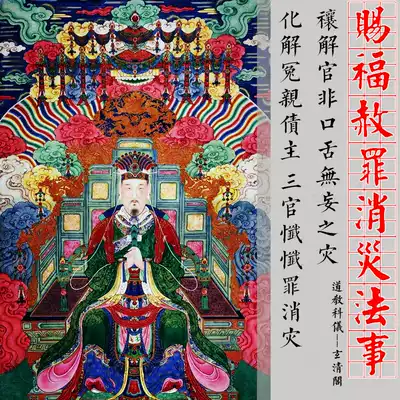 賜福赦罪消災法事
禳解官非口舌無妄之灾
化解冤親債主 三官懺懺罪消灾
道教科儀——玄清閣